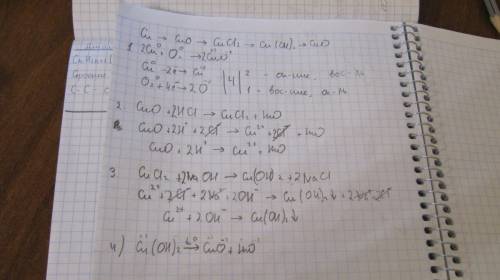 Cu → CuO → CuCl2 → Cu(OH)2 → CuO
1 2Cu⁰ + O₂⁰ → 2CuO
Cu⁰ - 2e → Cu⁺²
O₂⁰ + 4e → 2O⁻²
4
2 -
1 -
2. CuO + 2HCl → CuCl2 + H2O
CuO + 2H⁺ + 2Cl⁻ → Cu²⁺ + 2Cl⁻ + H2O
CuO + 2H⁺ → Cu²⁺ + H2O
3. CuCl2 + 2NaOH → Cu(OH)2 + 2NaCl
Cu²⁺ + 2Cl⁻ + 2Na⁺ + 2OH⁻ → Cu(OH)2↓ + 2Na⁺ + 2Cl⁻
Cu²⁺ + 2OH⁻ → Cu(OH)2↓
4) Cu(OH)2 → CuO + H2O